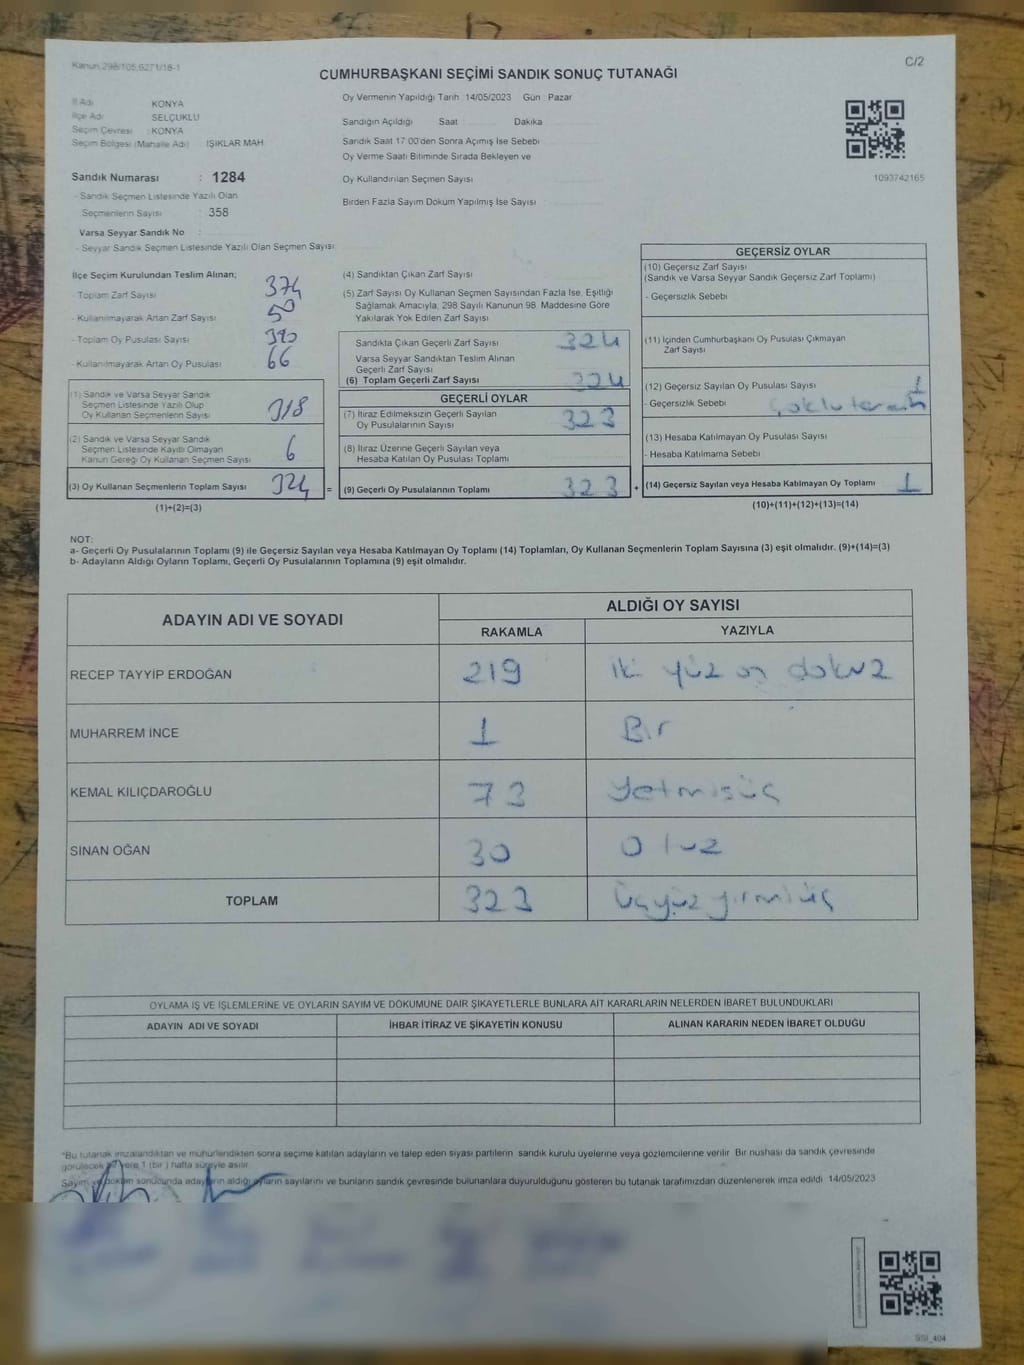 Kanun,298/105,6271/18-1
C/2
CUMHURBAŞKANI SEÇİMİ SANDIK SONUÇ TUTANAĞI
İl Adı KONYA
İlçe Adı SELÇUKLU
Seçim Çevresi : KONYA
Seçim Bölgesi (Mahalle Adı) IŞIKLAR MAH
Sandık Numarası : 1284
- Sandık Seçmen Listesinde Yazılı Olan
Seçmenlerin Sayısı : 358
Varsa Seyyar Sandık No
- Seyyar Sandık Seçmen Listesinde Yazılı Olan Seçmen Sayısı
Oy Vermenin Yapıldığı Tarih :14/05/2023 Gün : Pazar
Sandığın Açıldığı Saat Dakika
Sandık Saat 17 00'den Sonra Açımış İse Sebebi
Oy Verme Saati Bitiminde Sırada Bekleyen ve
Oy Kullandırılan Seçmen Sayısı
Birden Fazla Sayım Döküm Yapılmış İse Sayısı
1093742165
İlçe Seçim Kurulundan Teslim Alınan;
- Toplam Zarf Sayısı 374
- Kullanılmayarak Artan Zarf Sayısı 50
- Toplam Oy Pusulası Sayısı 390
- Kullanılmayarak Artan Oy Pusulası 66
(1) Sandık ve Varsa Seyyar Sandık
Seçmen Listesinde Yazılı Olup
Oy Kullanan Seçmenlerin Sayısı 318
(2) Sandık ve Varsa Seyyar Sandık
Seçmen Listesinde Kayıtlı Olmayan
Kanun Gereği Oy Kullanan Seçmen Sayısı 6
(3) Oy Kullanan Seçmenlerin Toplam Sayısı 324 =
(1)+(2)=(3)
(4) Sandıktan Çıkan Zarf Sayısı
(5) Zarf Sayısı Oy Kullanan Seçmen Sayısından Fazla İse, Eşitliği
Sağlamak Amacıyla, 298 Sayılı Kanunun 98. Maddesine Göre
Yakılarak Yok Edilen Zarf Sayısı
Sandıkta Çıkan Geçerli Zarf Sayısı 324
Varsa Seyyar Sandıktan Teslim Alınan
Geçerli Zarf Sayısı
(6) Toplam Geçerli Zarf Sayısı 324
GEÇERLİ OYLAR
(7) İtiraz Edilmeksizin Geçerli Sayılan
Oy Pusulalarının Sayısı 323
(8) İtiraz Üzerine Geçerli Sayılan veya
Hesaba Katılan Oy Pusulası Toplamı
(9) Geçerli Oy Pusulalarının Toplamı 323 +
GEÇERSİZ OYLAR
(10) Geçersiz Zarf Sayısı
(Sandık ve Varsa Seyyar Sandık Geçersiz Zarf Toplamı)
- Geçersizlik Sebebi
(11) İçinden Cumhurbaşkanı Oy Pusulası Çıkmayan
Zarf Sayısı
(12) Geçersiz Sayılan Oy Pusulası Sayısı 1
- Geçersizlik Sebebi Çoklu tercih
(13) Hesaba Katılmayan Oy Pusulası Sayısı
- Hesaba Katılmama Sebebi
(14) Geçersiz Sayılan veya Hesaba Katılmayan Oy Toplamı 1
(10)+(11)+(12)+(13)=(14)
NOT:
a- Geçerli Oy Pusulalarının Toplamı (9) ile Geçersiz Sayılan veya Hesaba Katılmayan Oy Toplamı (14) Toplamları, Oy Kullanan Seçmenlerin Toplam Sayısına (3) eşit olmalıdır. (9)+(14)=(3)
b- Adayların Aldığı Oyların Toplamı, Geçerli Oy Pusulalarının Toplamına (9) eşit olmalıdır.
ADAYIN ADI VE SOYADI
ALDIĞI OY SAYISI
RAKAMLA YAZIYLA
RECEP TAYYİP ERDOĞAN 219 iki yüz on dokuz
MUHARREM İNCE 1 Bir
KEMAL KILIÇDAROĞLU 73 Yetmişüç
SİNAN OĞAN 30 Otuz
TOPLAM 323 üçyüzyirmiüç
OYLAMA İŞ VE İŞLEMLERİNE VE OYLARIN SAYIM VE DÖKÜMÜNE DAİR ŞİKAYETLERLE BUNLARA AİT KARARLARIN NELERDEN İBARET BULUNDUKLARI
ADAYIN ADI VE SOYADI İHBAR İTİRAZ VE ŞİKAYETİN KONUSU ALINAN KARARIN NEDEN İBARET OLDUĞU
*Bu tutanak imzalandıktan ve mühürlendikten sonra seçime katılan adayların ve talep eden siyasi partilerin sandık kurulu üyelerine veya gözlemcilerine verilir Bir nüshası da sandık çevresinde
görülecek bir yere 1 (bir ) hafta süreyle asılır.
Sayım ve döküm sonucunda adayların aldığı oyların sayılarını ve bunların sandık çevresinde bulunanlara duyurulduğunu gösteren bu tutanak tarafımızdan düzenlenerek imza edildi 14/05/2023
SSI_404